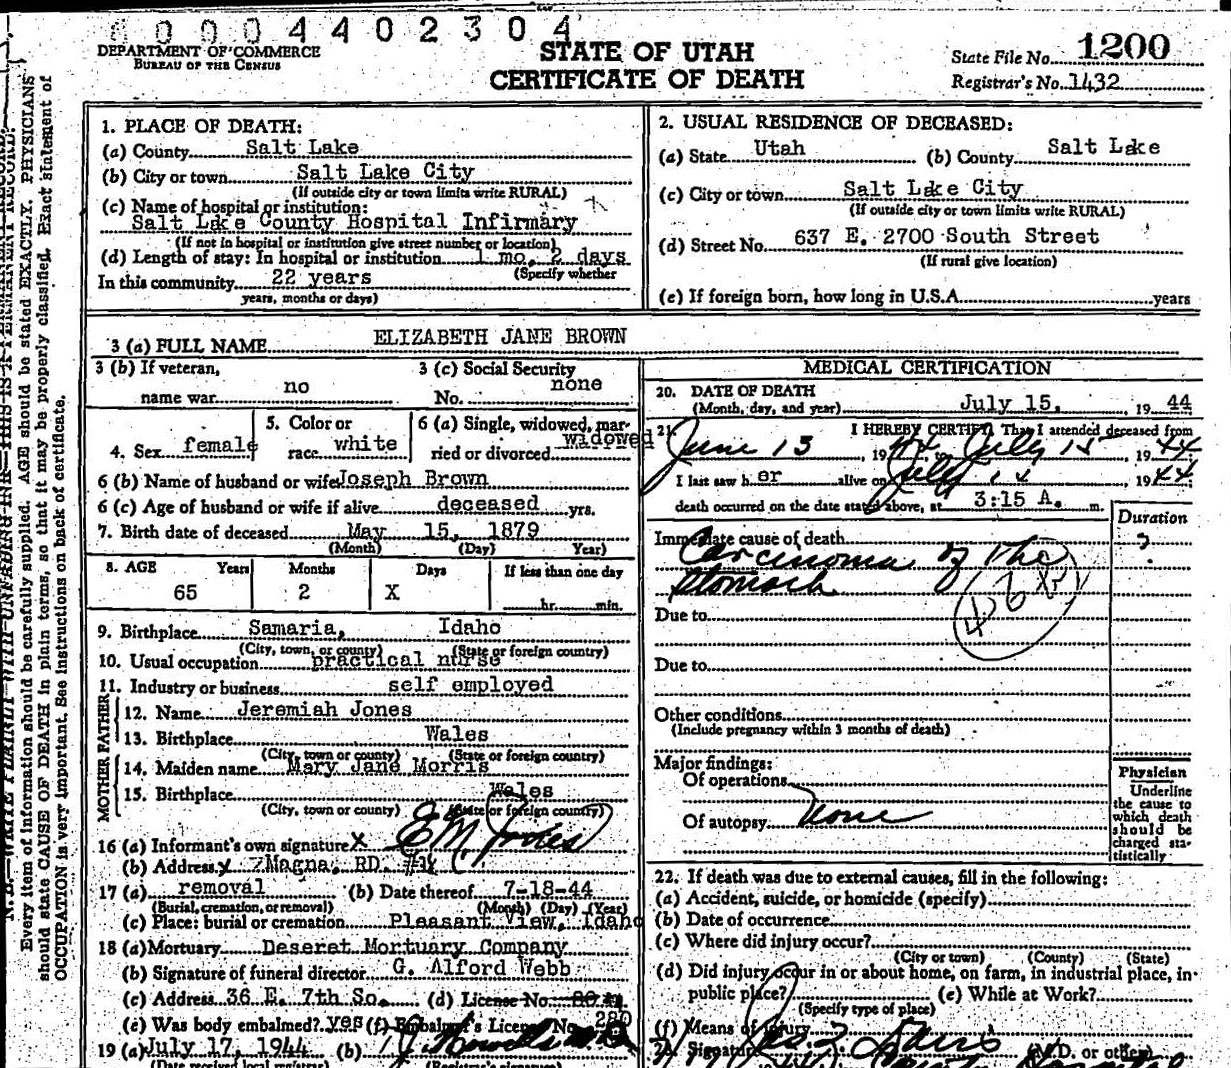 00004402304
DEPARTMENT OF COMMERCE
BUREAU OF THE CENSUS
STATE OF UTAH
CERTIFICATE OF DEATH
State File No. 1200
Registrar's No. 1432
Every item of information should be carefully supplied. AGE should be stated EXACTLY. PHYSICIANS
should state CAUSE OF DEATH in plain terms, so that it may be properly classified. Exact statement of
OCCUPATION is very important. See instructions on back of certificate.
1. PLACE OF DEATH:
(a) County Salt Lake
(b) City or town Salt Lake City
(If outside city or town limits write RURAL)
(c) Name of hospital or institution:
Salt Lake County Hospital Infirmary
(If not in hospital or institution give street number or location)
(d) Length of stay: In hospital or institution 1 mo. 2 days
(Specify whether
In this community 22 years
years, months or days)
2. USUAL RESIDENCE OF DECEASED:
(a) State Utah (b) County Salt Lake
(c) City or town Salt Lake City
(If outside city or town limits write RURAL)
(d) Street No. 637 E. 2700 South Street
(If rural give location)
(e) If foreign born, how long in U.S.A. years
3 (a) FULL NAME ELIZABETH JANE BROWN
3 (b) If veteran,
name war no
3 (c) Social Security
No. none
4. Sex female
5. Color or
race white
6 (a) Single, widowed, mar-
ried or divorced widowed
6 (b) Name of husband or wife Joseph Brown
6 (c) Age of husband or wife if alive deceased yrs.
7. Birth date of deceased May 15, 1879
(Month) (Day) Year)
8. AGE Years Months Days If less than one day
65 2 X hr. min.
9. Birthplace Samaria, Idaho
(City, town, or county) (State or foreign country)
10. Usual occupation practical nurse
11. Industry or business self employed
FATHER
12. Name Jeremiah Jones
13. Birthplace Wales
(City, town or county) (State or foreign country)
MOTHER
14. Maiden name Mary Jane Morris
15. Birthplace Wales
(City, town or county) (State or foreign country)
16 (a) Informant's own signature X E M Jones
(b) Address X Magna, RD.
17 (a) removal (b) Date thereof 7-18-44
(Burial, cremation, or removal) (Month) (Day) (Year)
(c) Place: burial or cremation Pleasant View, Idaho
18 (a) Mortuary Deseret Mortuary Company
(b) Signature of funeral director G. Alford Webb
(c) Address 36 E. 7th So. (d) License No.
(e) Was body embalmed? yes (f) Embalmer's License No. 280
19 (a) July 17, 1944 (b)
(Date received local registrar) (Registrar's signature)
MEDICAL CERTIFICATION
20. DATE OF DEATH
(Month, day, and year) July 15, 1944
21. I HEREBY CERTIFY That I attended deceased from
June 13, 1944, to July 15 1944
I last saw h er alive on July 14 1944
death occurred on the date stated above, at 3:15 A. m.
Duration
Immediate cause of death
Carcinoma of the
Stomach
Due to
Due to
Other conditions
(Include pregnancy within 3 months of death)
Major findings:
Of operations
Of autopsy None
Physician
Underline
the cause to
which death
should be
charged sta-
tistically
22. If death was due to external causes, fill in the following:
(a) Accident, suicide, or homicide (specify)
(b) Date of occurrence
(c) Where did injury occur?
(City or town) (County) (State)
(d) Did injury occur in or about home, on farm, in industrial place, in
public place? (e) While at Work?
(Specify type of place)
(f) Means of injury
Signature (M.D. or other)